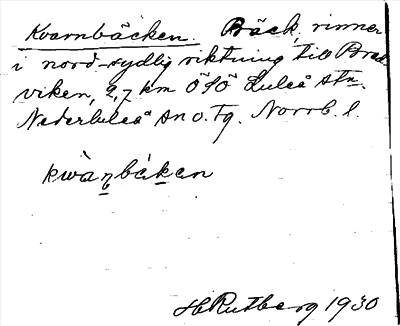 Kvarnbäcken. Bäck, rinner
i nord-sydlig riktning till Bred-
viken, 2,7 km ÖSÖ Luleå stn.
Nederluleå sn o. tg. Norrb. l.
kwàn̥bä́kan
H Rutberg 1930